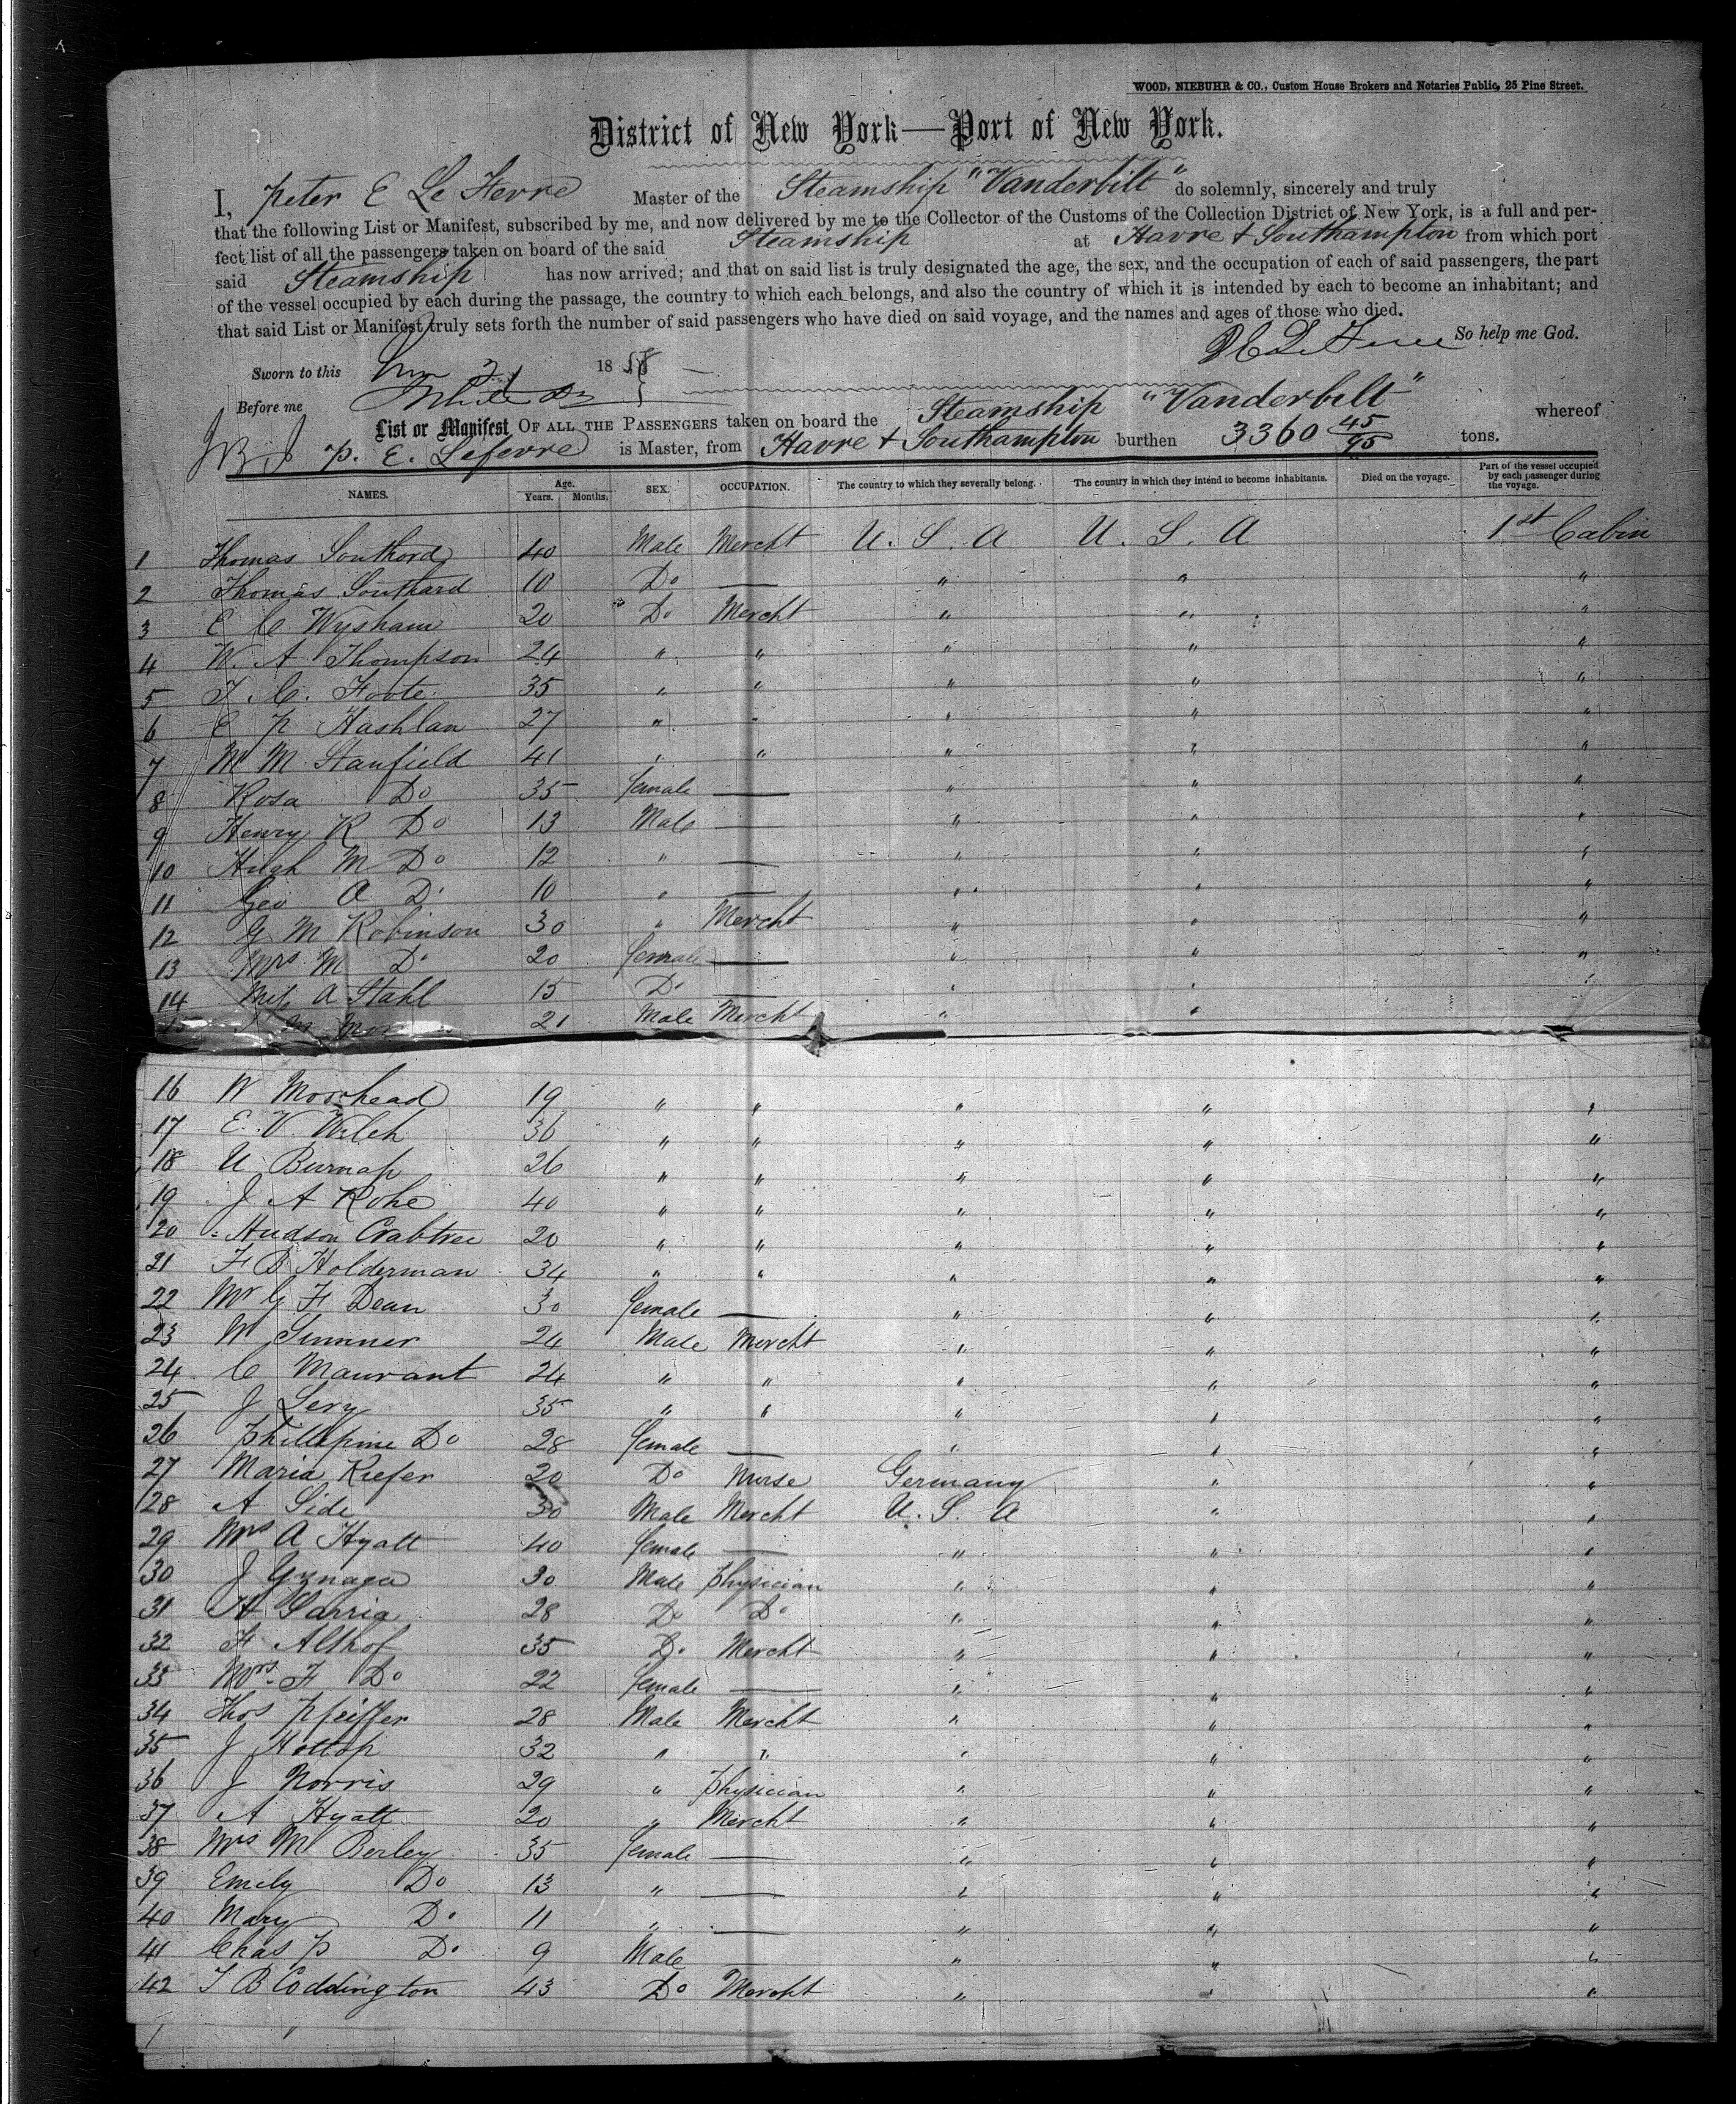 WOOD, NIEBUHR & CO., Custom House Brokers and Notaries Public, 25 Pine Street.
District of New York—Port of New York.
I, Peter E Le Fevre Master of the Steamship "Vanderbilt" do solemnly, sincerely and truly
that the following List or Manifest, subscribed by me, and now delivered by me to the Collector of the Customs of the Collection District of New York, is a full and per-
fect list of all the passengers taken on board of the said Steamship at Havre & Southampton from which port
said Steamship has now arrived; and that on said list is truly designated the age, the sex, and the occupation of each of said passengers, the part
of the vessel occupied by each during the passage, the country to which each belongs, and also the country of which it is intended by each to become an inhabitant; and
that said List or Manifest truly sets forth the number of said passengers who have died on said voyage, and the names and ages of those who died.
So help me God.
Sworn to this 1858
Before me
List or Manifest OF ALL THE PASSENGERS taken on board the Steamship "Vanderbilt" whereof
P. E. Lefevre is Master, from Havre & Southampton burthen 3360 45/95 tons.
NAMES. Age. Years. Months. SEX. OCCUPATION. The country to which they severally belong. The country in which they intend to become inhabitants. Died on the voyage. Part of the vessel occupied by each passenger during the voyage.
1 Thomas Southord 40 Male Mercht U. S. A U. S. A 1st Cabin
2 Thomas Southard 10 Do — " " "
3 E C Wysham 20 Do Mercht " " "
4 W. A Thompson 24 " " " " "
5 T. C. Foote 35 " " " " "
6 E P Hashlan 27 " " " " "
7 M M Stanfield 41 " " " " "
8 Rosa Do 35 female — " " "
9 Henry R Do 13 Male — " " "
10 Hugh M Do 12 " — " " "
11 Geo A Do 10 " — " " "
12 G M Robinson 30 " Mercht " " "
13 Mrs M Do 20 female — " " "
14 Miss A Stahl 15 Do — " " "
21 Male Mercht " "
16 W Moorhead 19 " " " " "
17 E. V. Welch 36 " " " " "
18 U Burnap 26 " " " " "
19 J A Rohe 40 " " " " "
20 Hudson Crabtree 20 " " " " "
21 F B Holderman 34 " " " " "
22 Mr G F Dean 30 female — " " "
23 W Sumner 24 Male Mercht " " "
24 C Maurant 24 " " " " "
25 J Levy 35 " " " " "
26 Phillipine Do 28 female — " " "
27 Maria Kiefer 20 Do Nurse Germany " "
28 A Side 30 Male Mercht U. S. A " "
29 Mrs A Hyatt 40 female — " " "
30 J Gynaga 30 Male Physician " " "
31 H Sarria 28 Do Do " " "
32 F Althof 35 Do Mercht " " "
33 Mrs F Do 22 female — " " "
34 Thos Pfeiffer 28 Male Mercht " " "
35 J Hottop 32 " " " " "
36 J Norris 29 " Physician " " "
37 A Hyatt 20 " Mercht " " "
38 Mrs M Berley 35 female — " " "
39 Emily Do 13 " — " " "
40 Mary Do 11 " — " " "
41 Chas P Do 9 Male " " "
42 T B Coddington 43 Do Mercht " " "